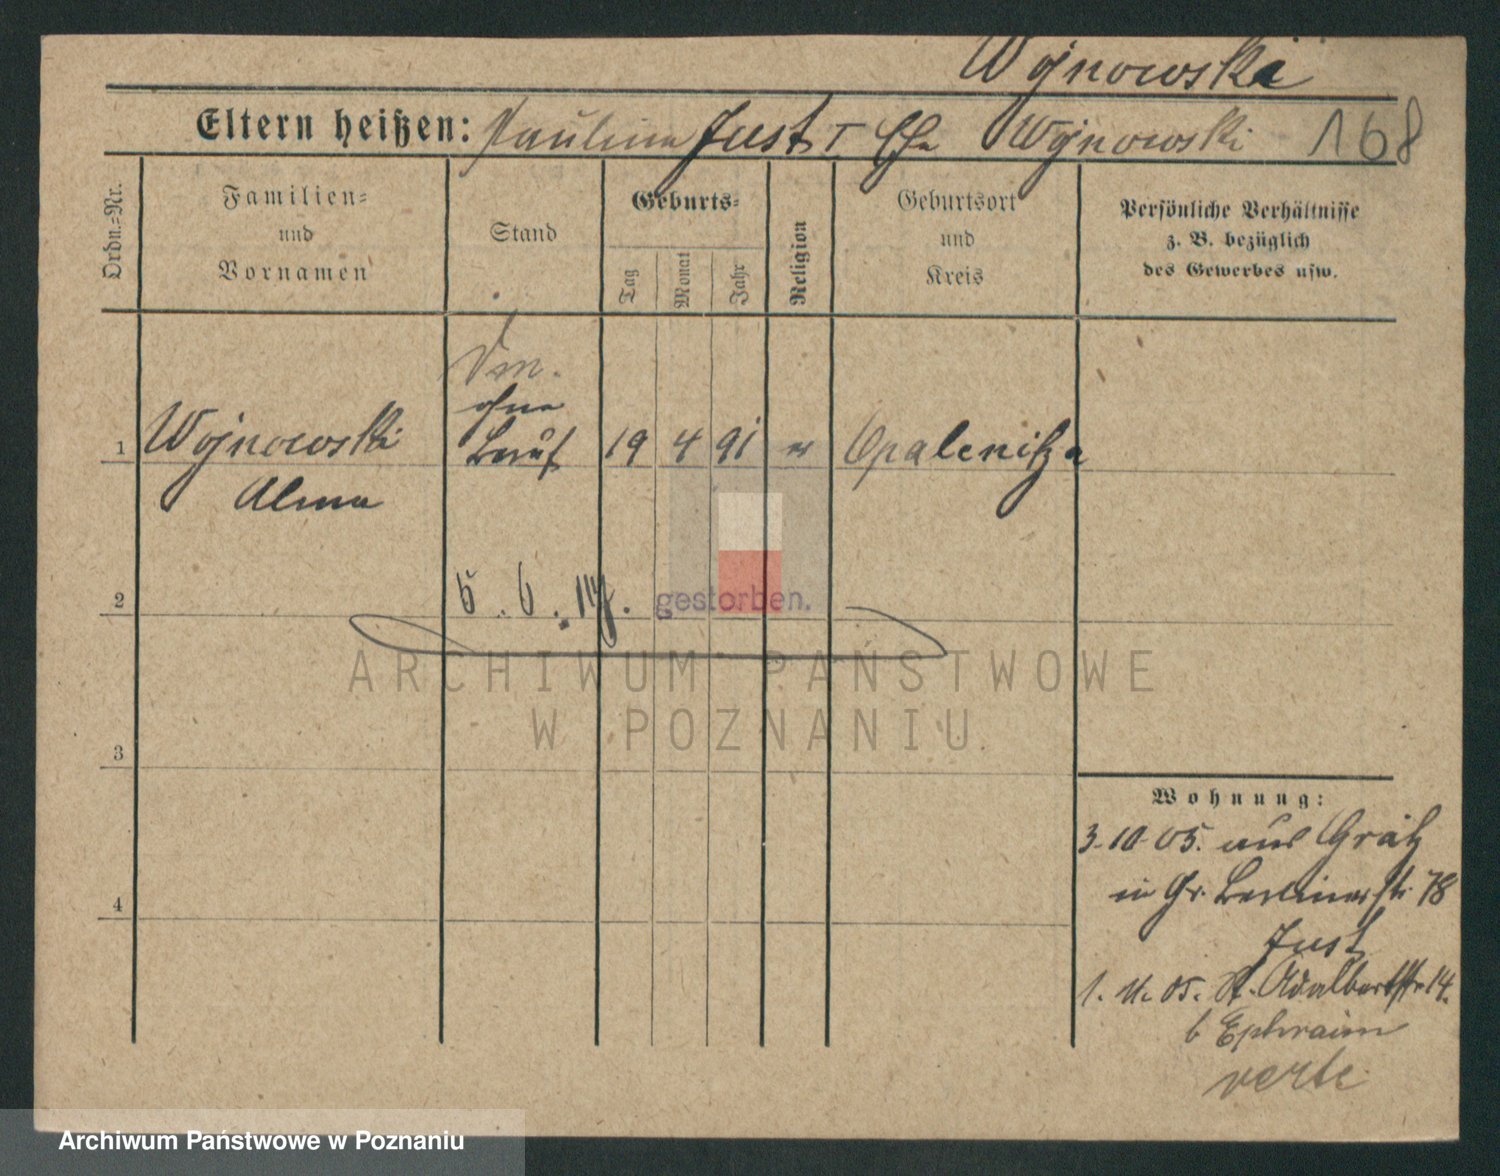 Wojnowski
Eltern heißen: Pauline Just I Ehe Wojnowski 168
Ordn.=Nr.
Familien=
und
Vornamen
Stand
Geburts=
Tag
Monat
Jahr
Religion
Geburtsort
und
Kreis
Persönliche Verhältnisse
z. B. bezüglich
des Gewerbes usw.
ohne
1 Wojnowski Beruf 19 4 91 Opalenitza
Alma
2 5. 6. gestorben.
ARCHIWUM PAŃSTWOWE
W POZNANIU
3
Wohnung:
3.10.05. aus Grätz
in Gr. Berlinerstr. 78
4
Just
1. 11. 05. St. Adalbertstr 14.
b Ephraim
verte
Archiwum Państwowe w Poznaniu